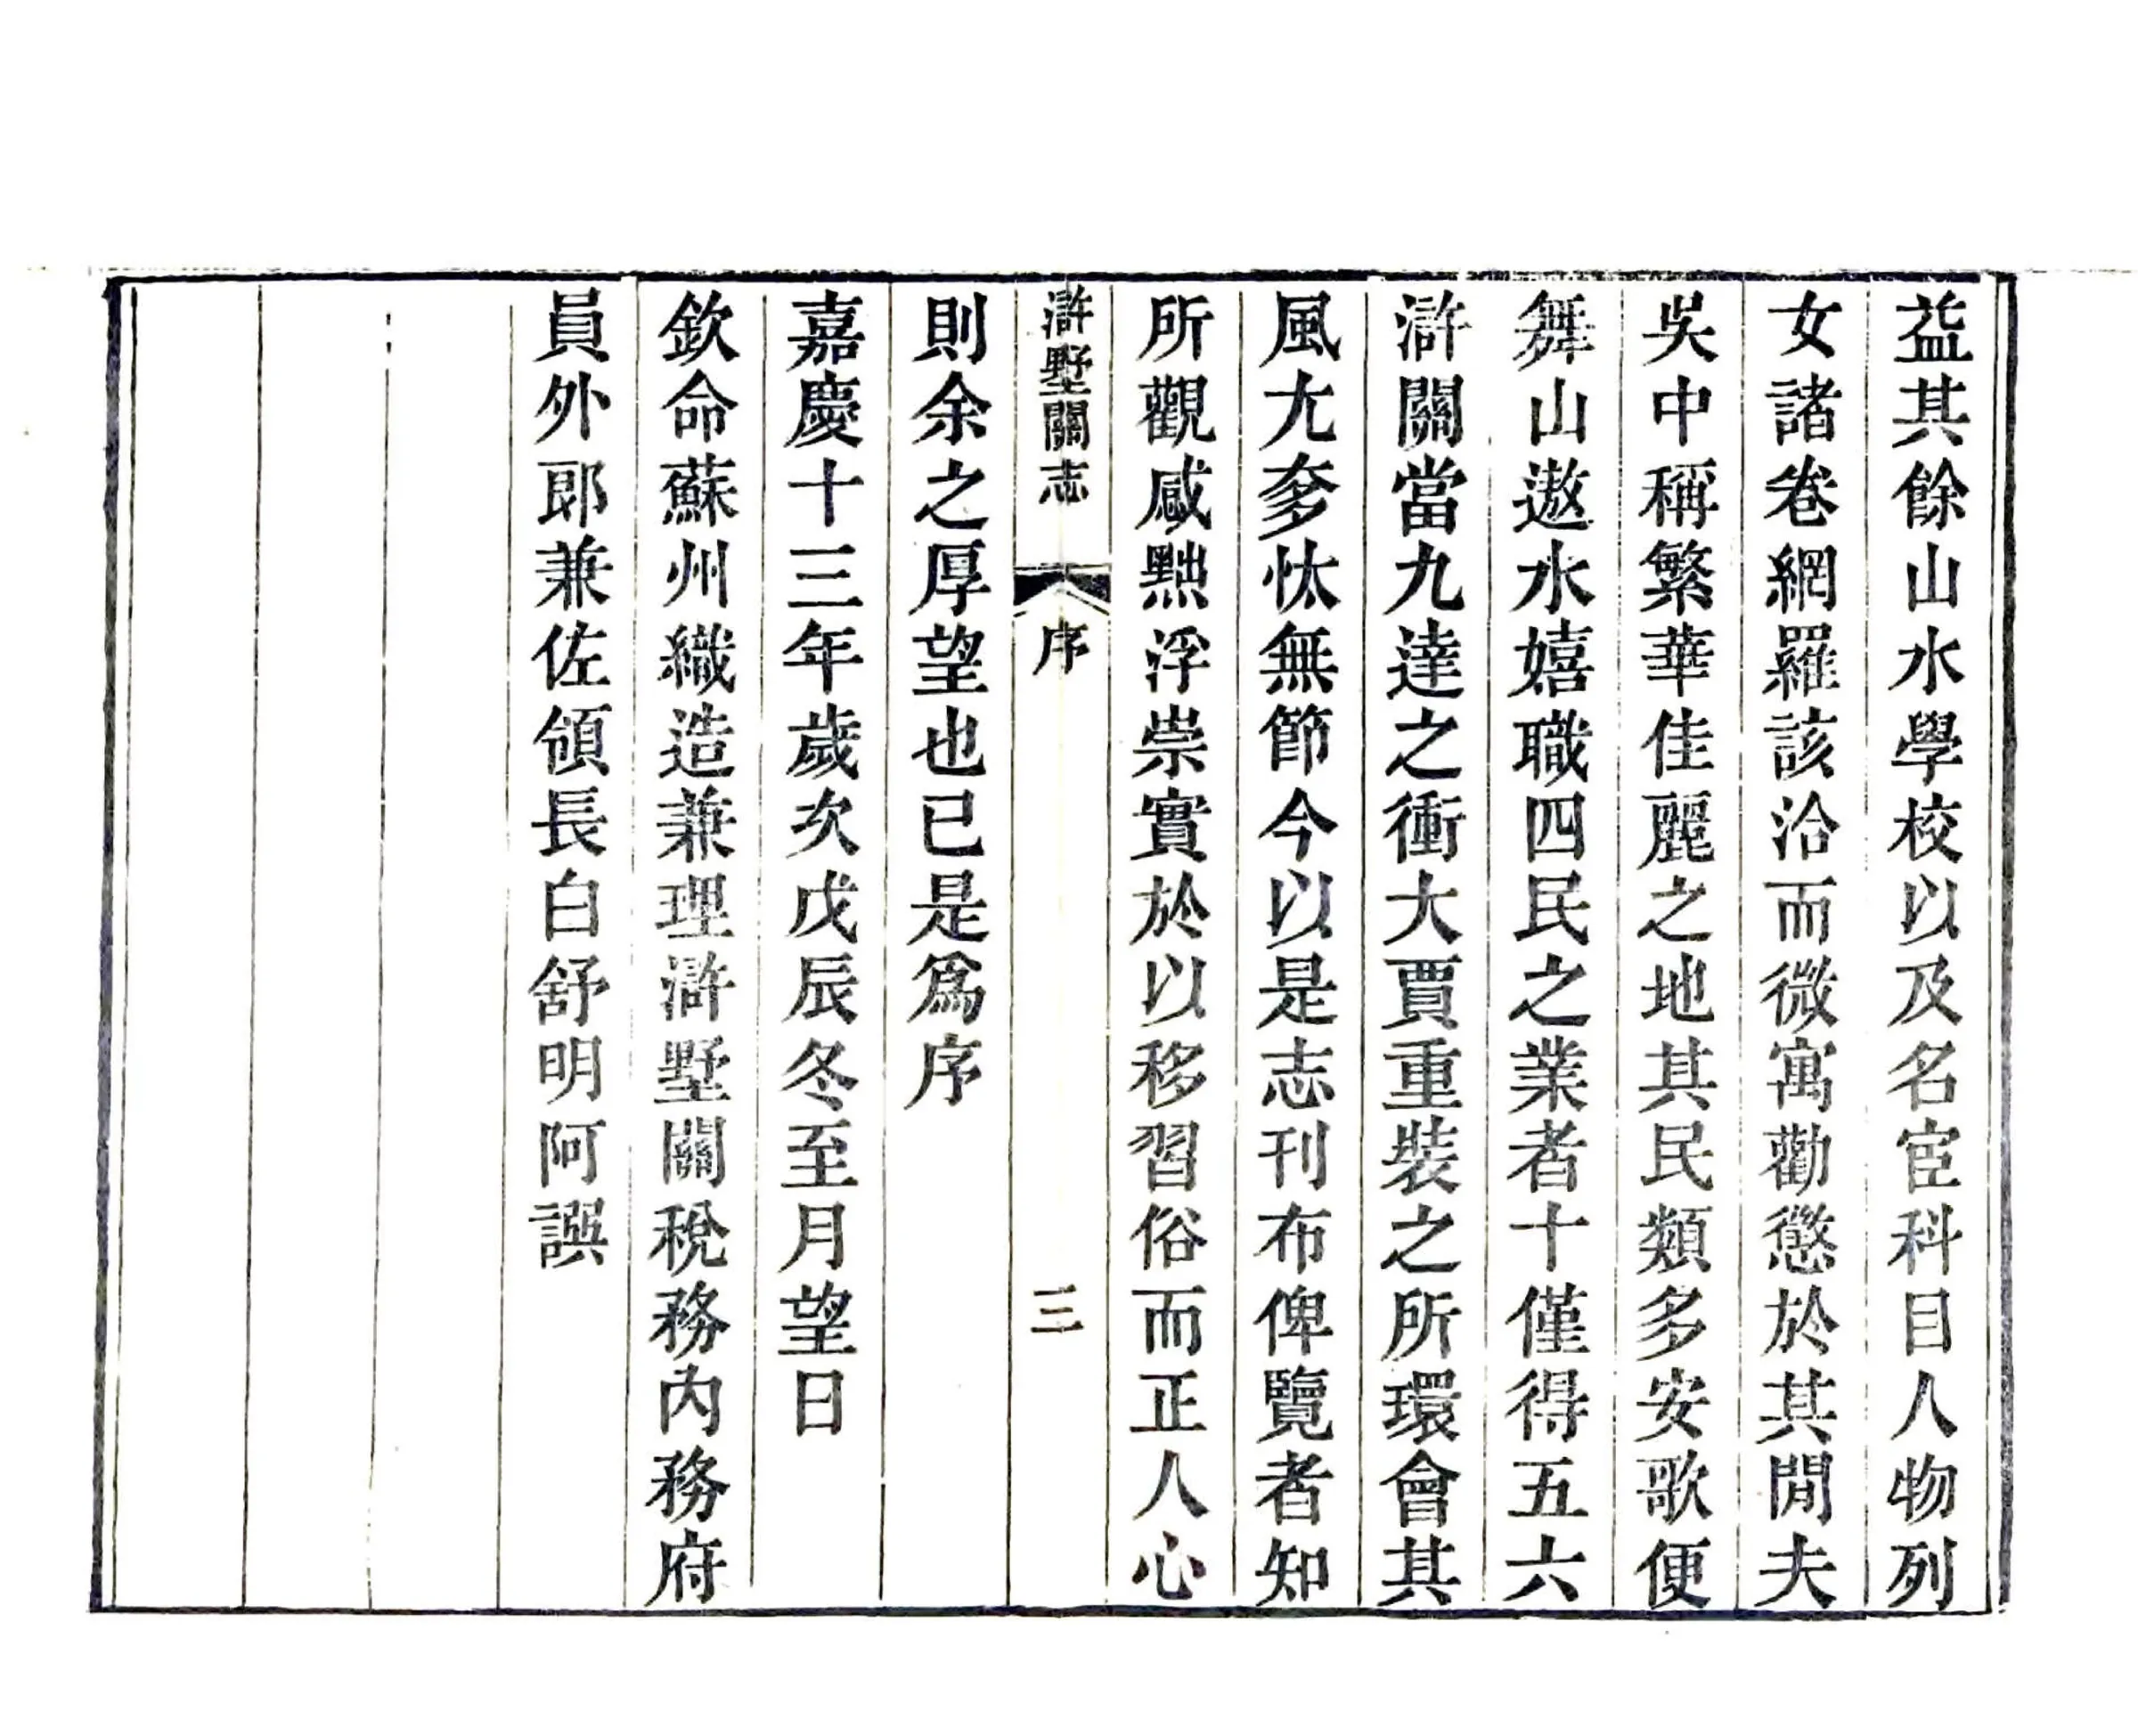 益其餘山水學校以及名宦科目人物列
女諸卷網羅該洽而微寓勸懲於其閒夫
吳中稱繁華佳麗之地其民類多安歌便
舞山遨水嬉職四民之業者十僅得五六
滸關當九達之衝大賈重裝之所環會其
風尤奓忲無節今以是志刊布俾覽者知
所觀感黜浮崇實於以移習俗而正人心
滸墅關志 序 三
則余之厚望也已是爲序
嘉慶十三年歲次戊辰冬至月望日
欽命蘇州織造兼理滸墅關稅務內務府
員外郎兼佐領長白舒明阿譔